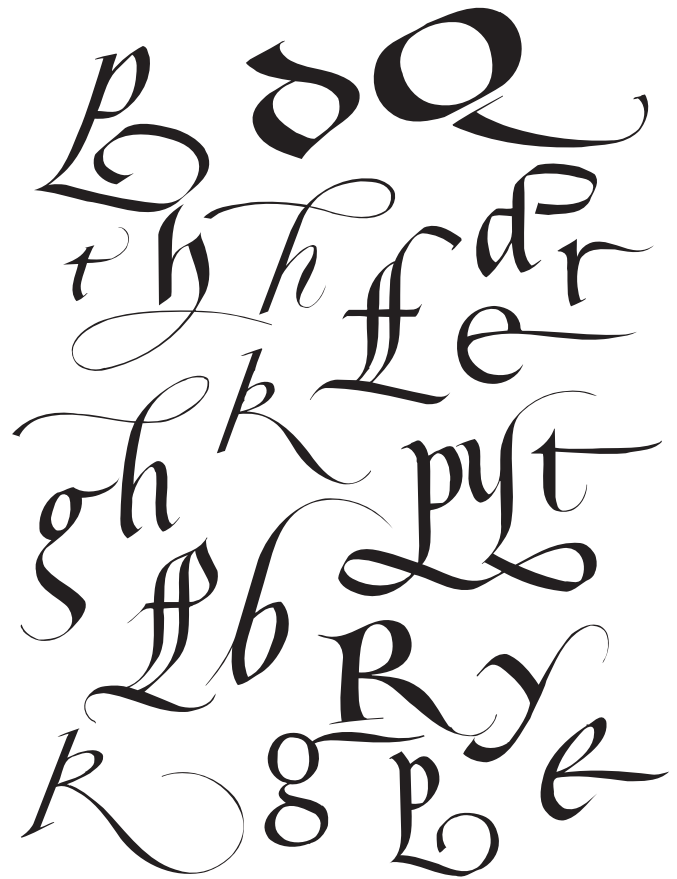 p d Q
t h h ff d r
e
k
g h p y t
ff b
R y
k g p e